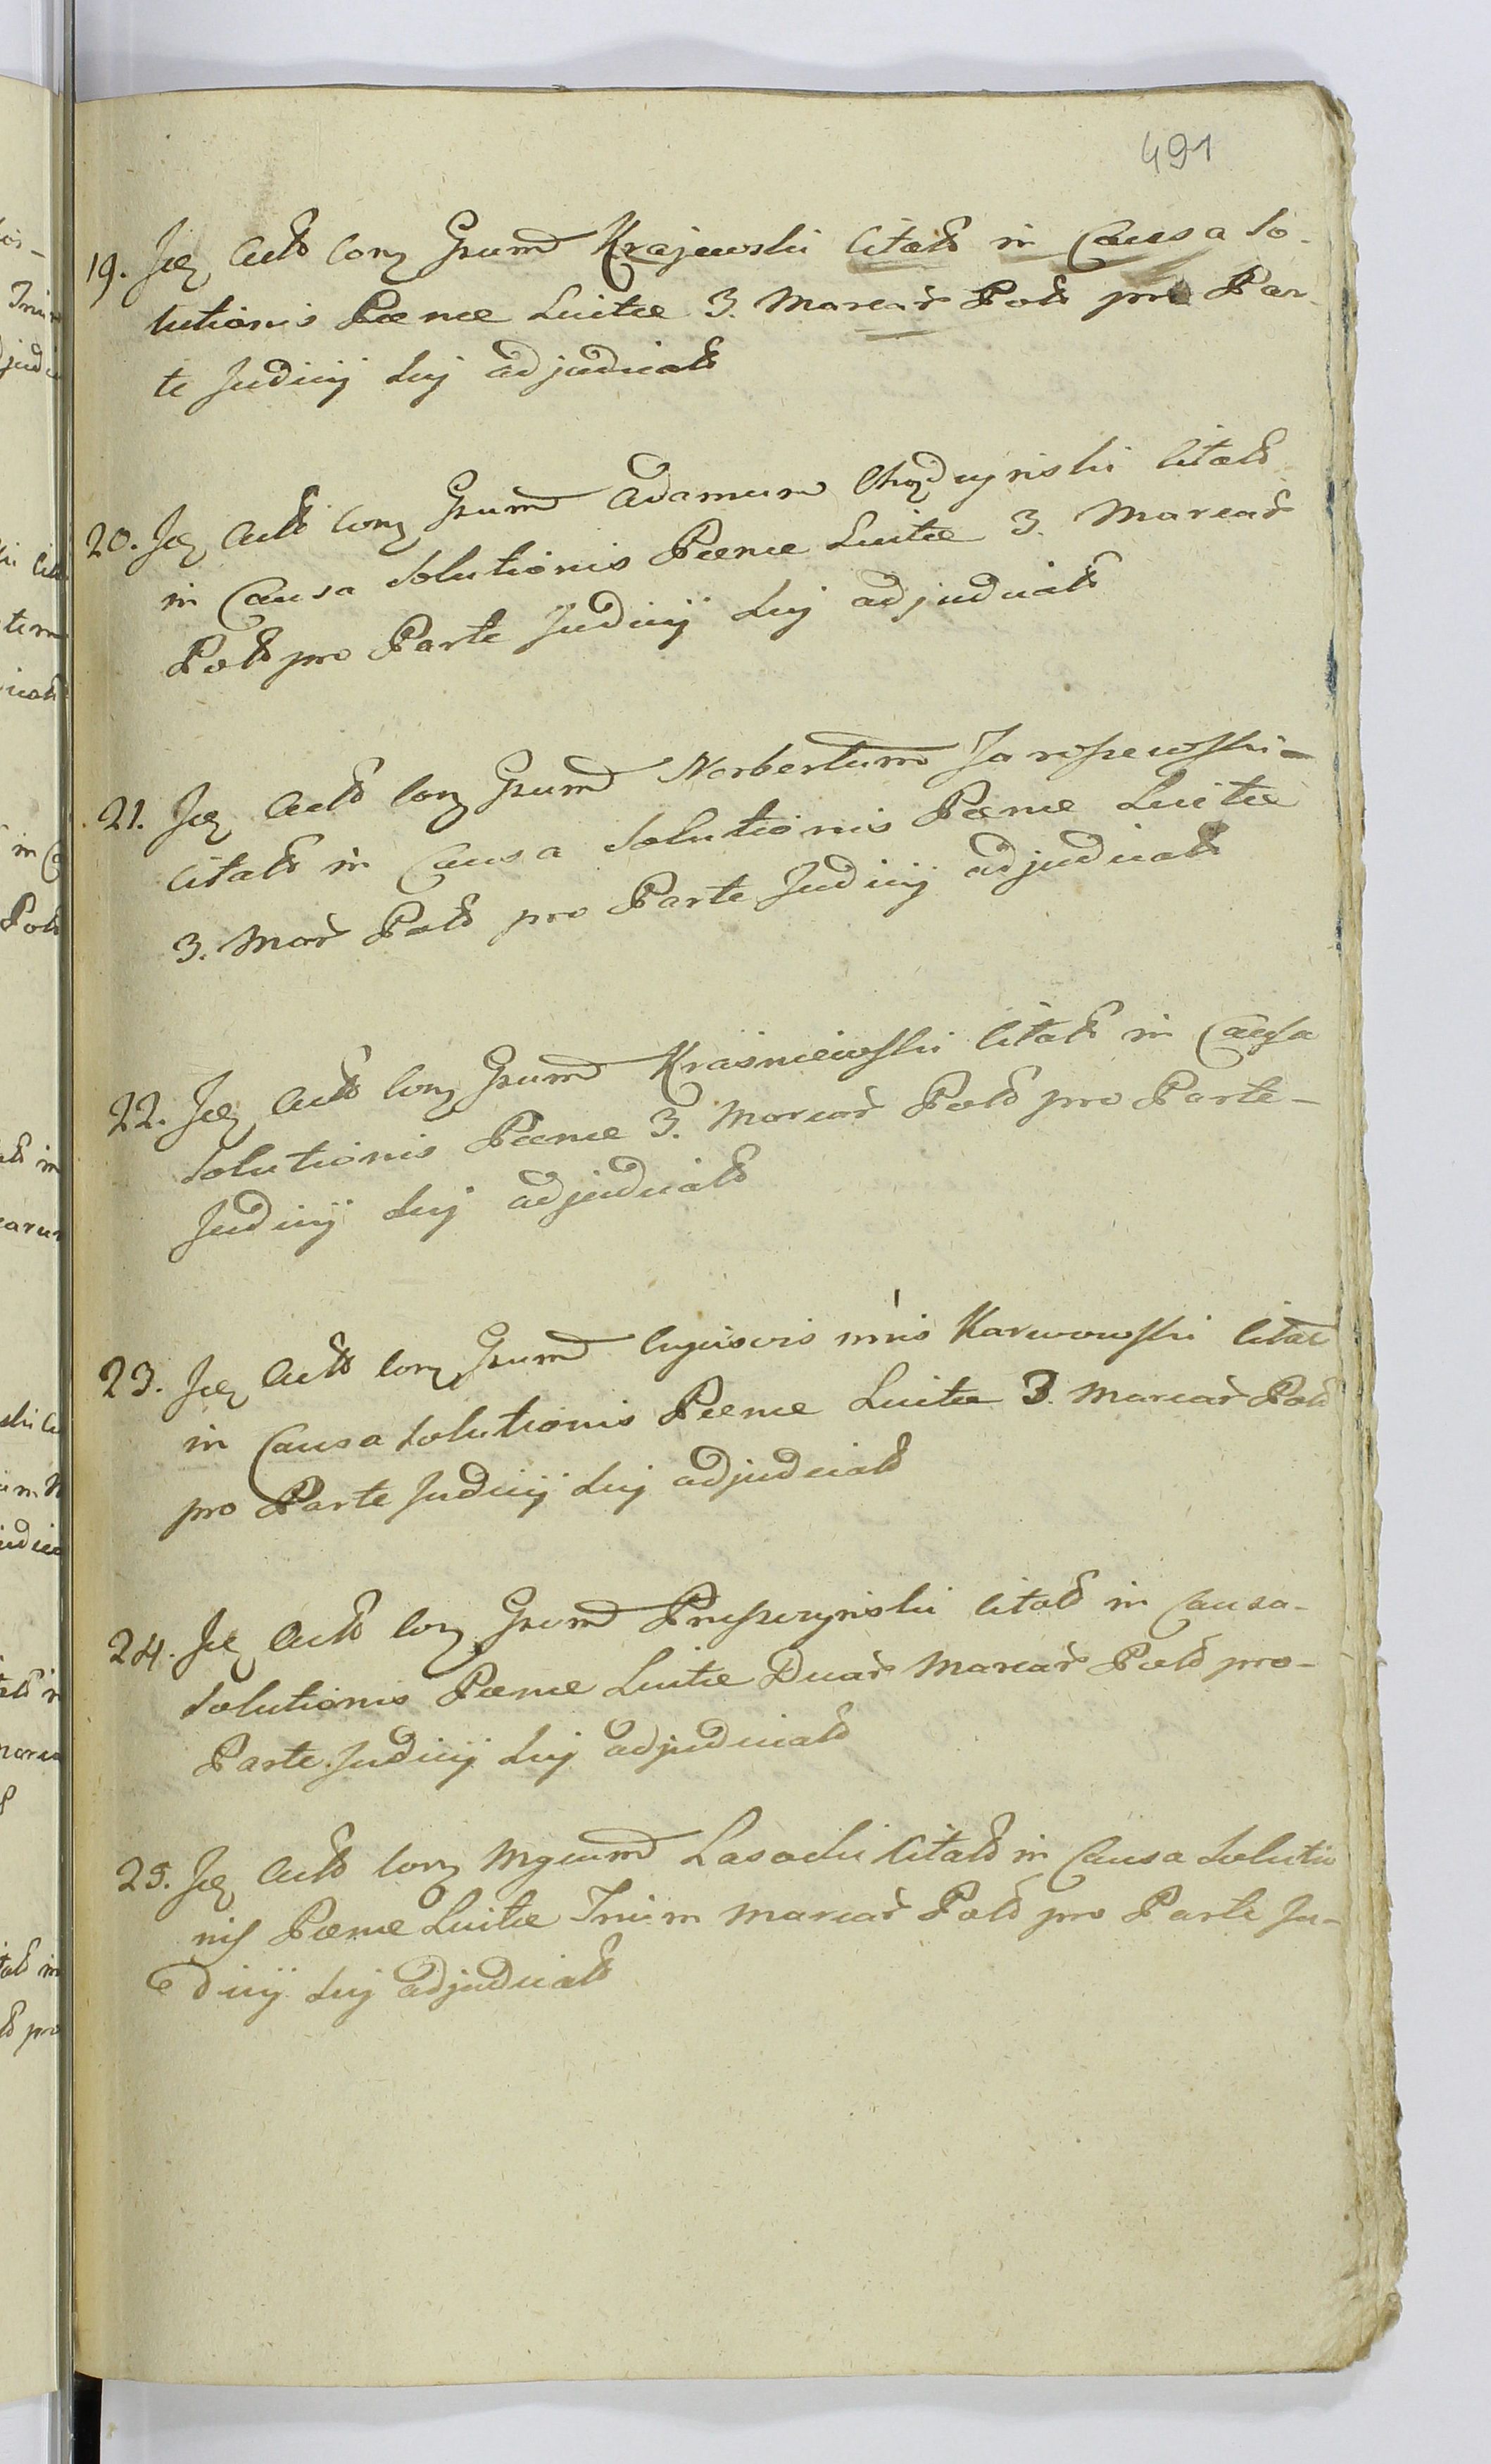 491
19. Jcq Actt conq Gsumd Krajewski Citatt in Causa So-
lutionis Pœnæ Luitæ 3. Marcar Pott pro Par-
te Judicij Suj adjudicatt
20. Jcq Actt conq Gsumd Adamum Chądzyński Citatt
in Causa Solutionis Pœnæ Luitæ 3. Marcar
Pott pro Parte Judicij Suj adjudicatt
21. Jcq Actt conq Gsumd Norbertum Jarszewski -
Citatt in Causa Solutionis Pœnæ Luitæ
3. Mar Pott pro Parte Judicij adjudicatt
22. Jcq Actt conq Gsumd Kraśniewski Citatt in Causa
Solutionis Pœnæ 3. Marcar Pott pro Parte -
Judicij Suj adjudicatt
23. Jcq Actt conq Gsumd Karwowski Citat
in Causa Solutionis Pœnæ Luitæ 3. Marcar Pott
pro Parte Judicij Suj adjudicatt
24. Jcq Actt conq Gsumd Pruszczyński Citatt in Causa -
Solutionis Pœnæ Luitæ Duar Marcar Pott pro -
Parte Judicij Suj adjudicatt
25. Jcq Actt conq Mgcumd Lasocki Citatt in Causa Solutio
nis Pœnæ Luitæ Trium Marcar Pott pro Parte Ju-
dicij Suj adjudicatt